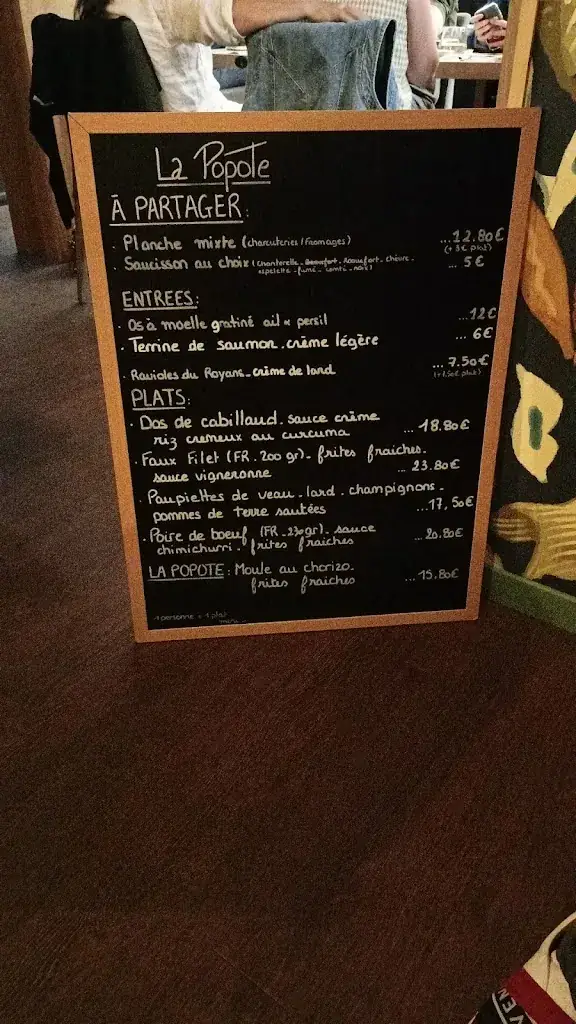 La Popote
À PARTAGER:
· Planche mixte (charcuteries / fromages) ...12.80€
(+3€ plat)
· Saucisson au choix (chanterelle - Beaufort - Roquefort - chèvre - ... 5€
espelette - fumé - comté - noix)
ENTREES:
· Os à moelle gratiné ail & persil ...12€
· Terrine de saumon. crème légère ... 6€
· Ravioles du Royans - crème de lard ... 7.50€
(+1.50€ plat)
PLATS:
· Dos de cabillaud. sauce crème
riz cremeux au curcuma ... 18.80€
· Faux Filet (FR. 200 gr)- frites fraiches.
sauce vigneronne ... 23.80€
· Paupiettes de veau. lard. champignons.
pommes de terre sautées ...17,50€
· Poire de boeuf (FR - 230gr). sauce
chimichurri. frites fraiches ... 20.80€
LA POPOTE: Moule au chorizo.
frites fraiches ... 15.80€
1 personne = 1 plat
mini
VEN